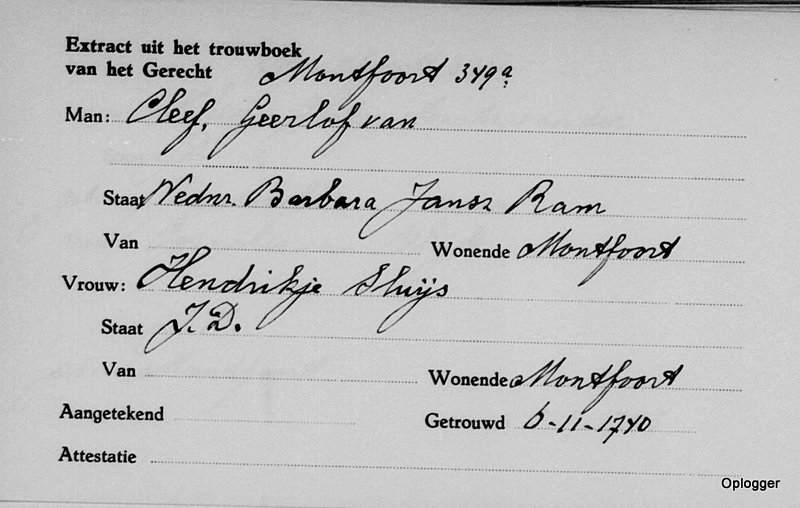 Extract uit het trouwboek
van het Gerecht Montfoort 349a
Man: Cleef, Geerlof van
Staat Wednr. Barbara Jansz Ram
Van Wonende Montfoort
Vrouw: Hendrikje Sluijs
Staat J.D.
Van Wonende Montfoort
Aangetekend Getrouwd 6-11-1740
Attestatie
Oplogger